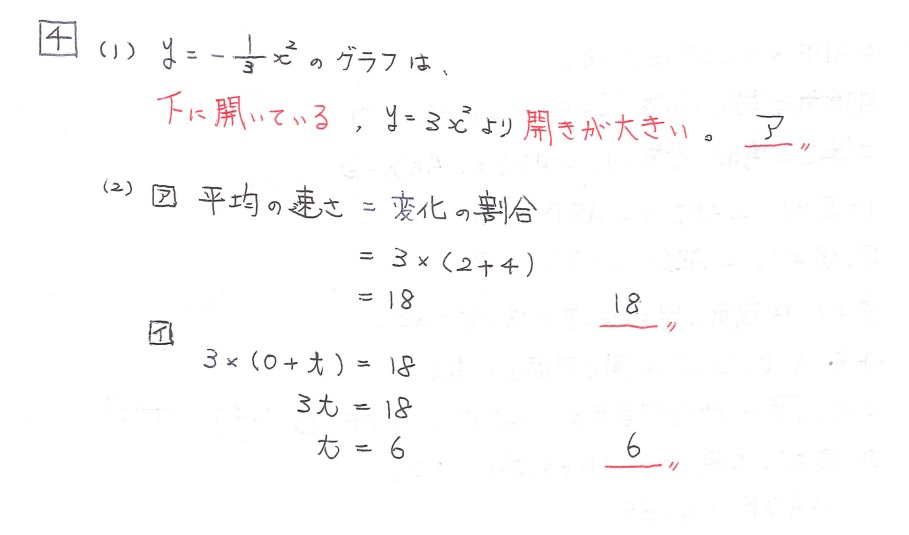 4 (1) y = -1/3 x² のグラフは、
下に開いている, y = 3x² より開きが大きい。 ア〃
(2) ア 平均の速さ = 変化の割合
= 3 × (2 + 4)
= 18 18〃
イ
3 × (0 + t) = 18
3t = 18
t = 6 6〃